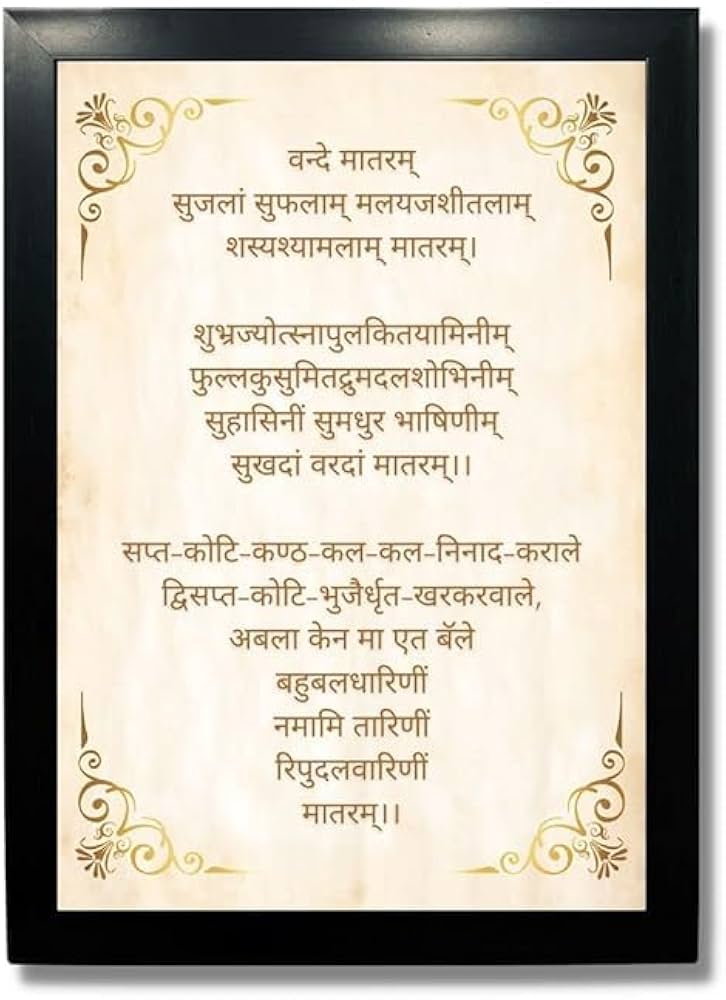 वन्दे मातरम्
सुजलां सुफलाम् मलयजशीतलाम्
शस्यश्यामलाम् मातरम्।
शुभ्रज्योत्स्नापुलकितयामिनीम्
फुल्लकुसुमितद्रुमदलशोभिनीम्
सुहासिनीं सुमधुर भाषिणीम्
सुखदां वरदां मातरम्।।
सप्त-कोटि-कण्ठ-कल-कल-निनाद-कराले
द्विसप्त-कोटि-भुजैर्धृत-खरकरवाले,
अबला केन मा एत बॅले
बहुबलधारिणीं
नमामि तारिणीं
रिपुदलवारिणीं
मातरम्।।